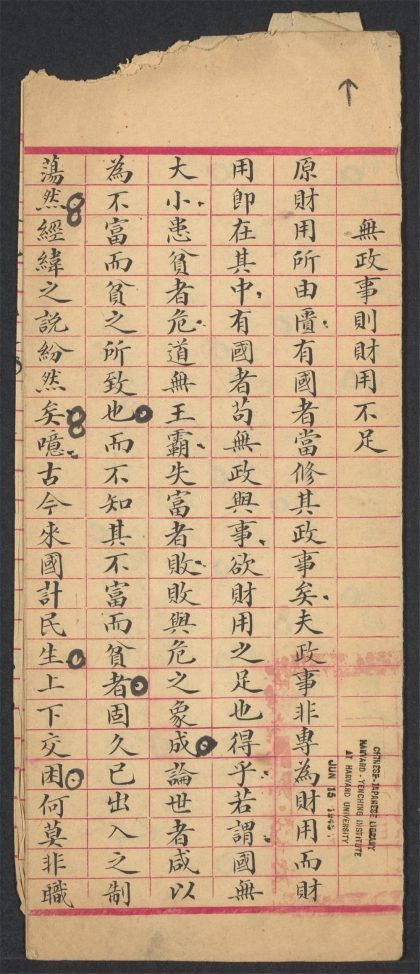 無政事則財用不足
原財用所由匱有國者當修其政事矣夫政事非專為財用而財
用即在其中有國者苟無政與事欲財用之足也得乎若謂國無
大小患貧者危道無王霸失富者敗敗與危之象成論世者咸以
為不富而貧之所致也而不知其不富而貧者固久已出入之制
蕩然經緯之說紛然矣噫古今來國計民生上下交困何莫非職
CHINESE-JAPANESE LIBRARY
HARVARD-YENCHING INSTITUTE
AT HARVARD UNIVERSITY
JUN 15